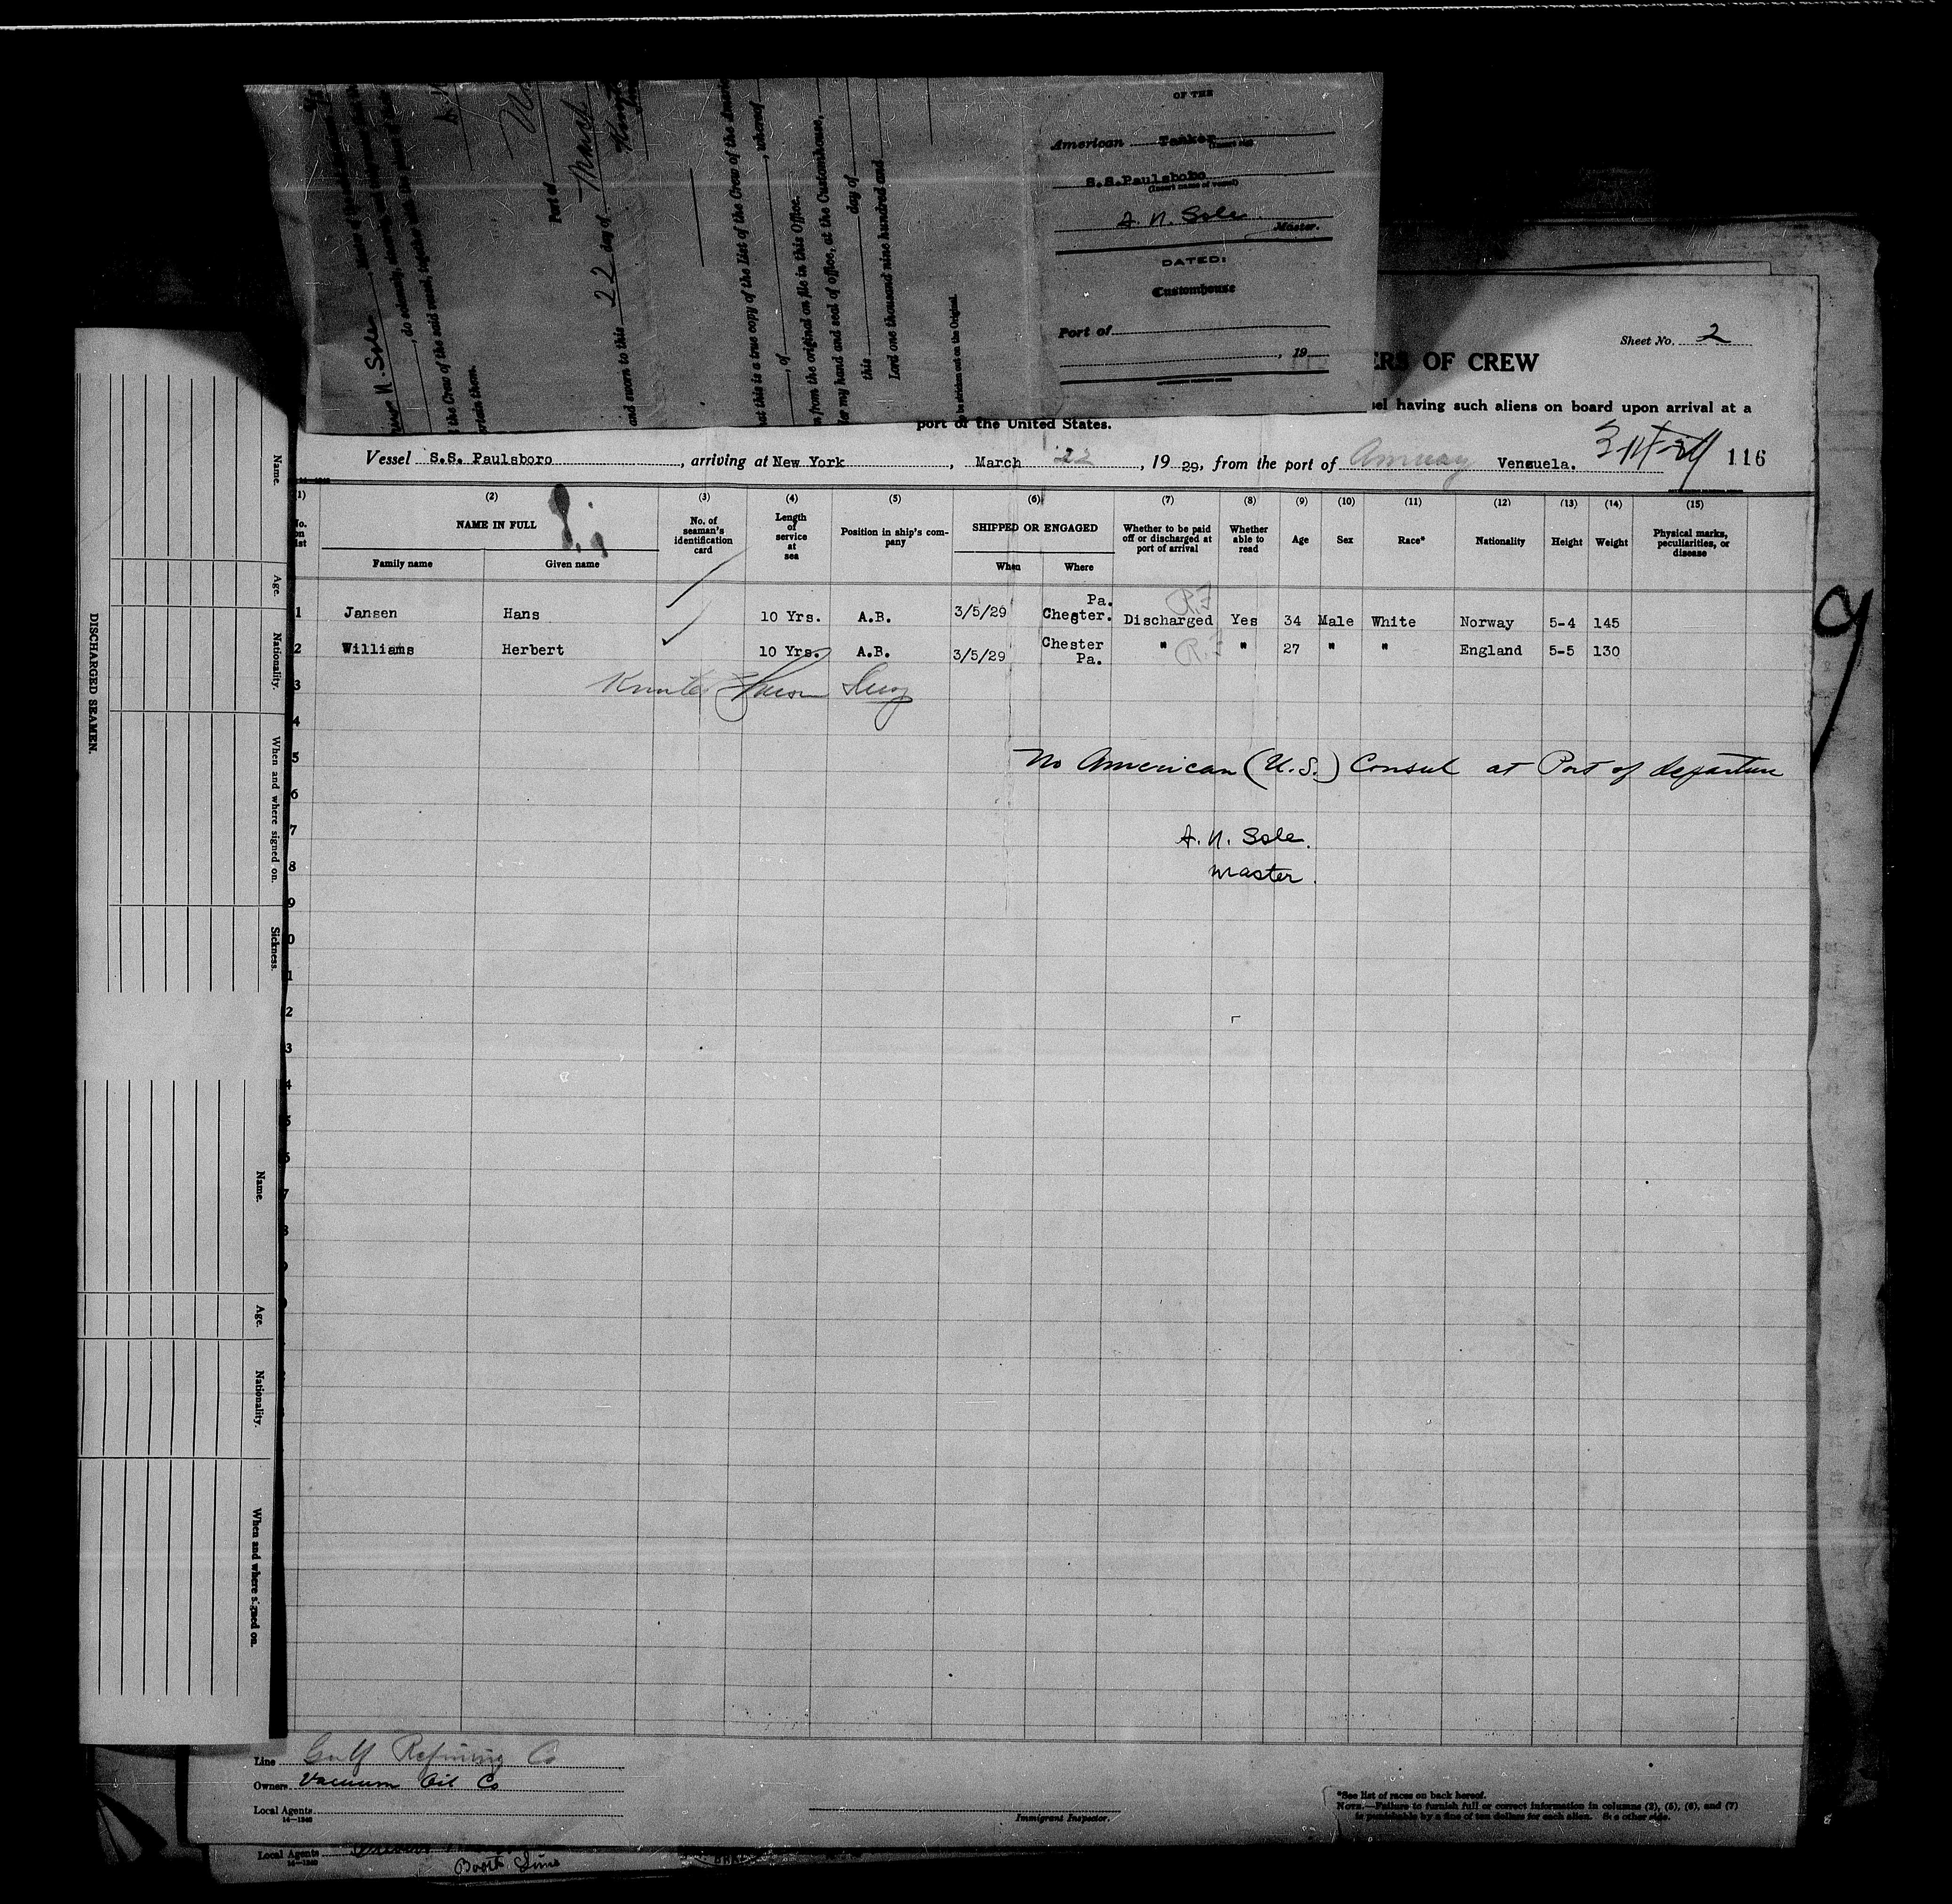 OF THE
American Tanker
(Insert rig)
S.S.Paulsboro
(Insert name of vessel)
A. N. Sole
Master.
DATED:
Customhouse
Port of
, 19
N. Sole
, do solemnly,
the Crew of the said vessel, together with
Port of
and sworn to this 22 day of March
that this is a true copy of the List of the Crew of the
, of , whereof
from the original on file in this Office.
my hand and seal of office, at the Customhouse,
this day of
Lord one thousand nine hundred and
be stricken out on the Original.
Sheet No. 2
OF CREW
having such aliens on board upon arrival at a
port of the United States.
Vessel S.S. Paulsboro , arriving at New York , March 22 , 19 29, from the port of Venzuela. 116
(1) (2) (3) (4) (5) (6) (7) (8) (9) (10) (11) (12) (13) (14) (15)
NAME IN FULL
Family name Given name
No. of seaman's identification card
Length of service at sea
Position in ship's company
SHIPPED OR ENGAGED
When Where
Whether to be paid off or discharged at port of arrival
Whether able to read
Age Sex Race* Nationality Height Weight
Physical marks, peculiarities, or disease
1 Jansen Hans 10 Yrs. A.B. 3/5/29 Pa. Chester. Discharged Yes 34 Male White Norway 5-4 145
2 Williams Herbert 10 Yrs. A.B. 3/5/29 Chester Pa. " " 27 " " England 5-5 130
3
4
5 No American (U.S.) Consul at Port of departure
6
7 A. N. Sole.
8 Master.
9
0
1
2
3
4
5
6
7
8
DISCHARGED SEAMEN.
Name.
Age.
Nationality.
When and where signed on.
Sickness.
Name.
Age.
Nationality.
When and where signed on.
Line Gulf Refining Co
Owners Vacuum Oil Co
Local Agents
14—1240
Immigrant Inspector.
*See list of races on back hereof.
NOTE.—Failure to furnish full or correct information in columns (2), (5), (6), and (7)
is punishable by a fine of ten dollars for each alien. See other side.
Local Agents
Booth Line